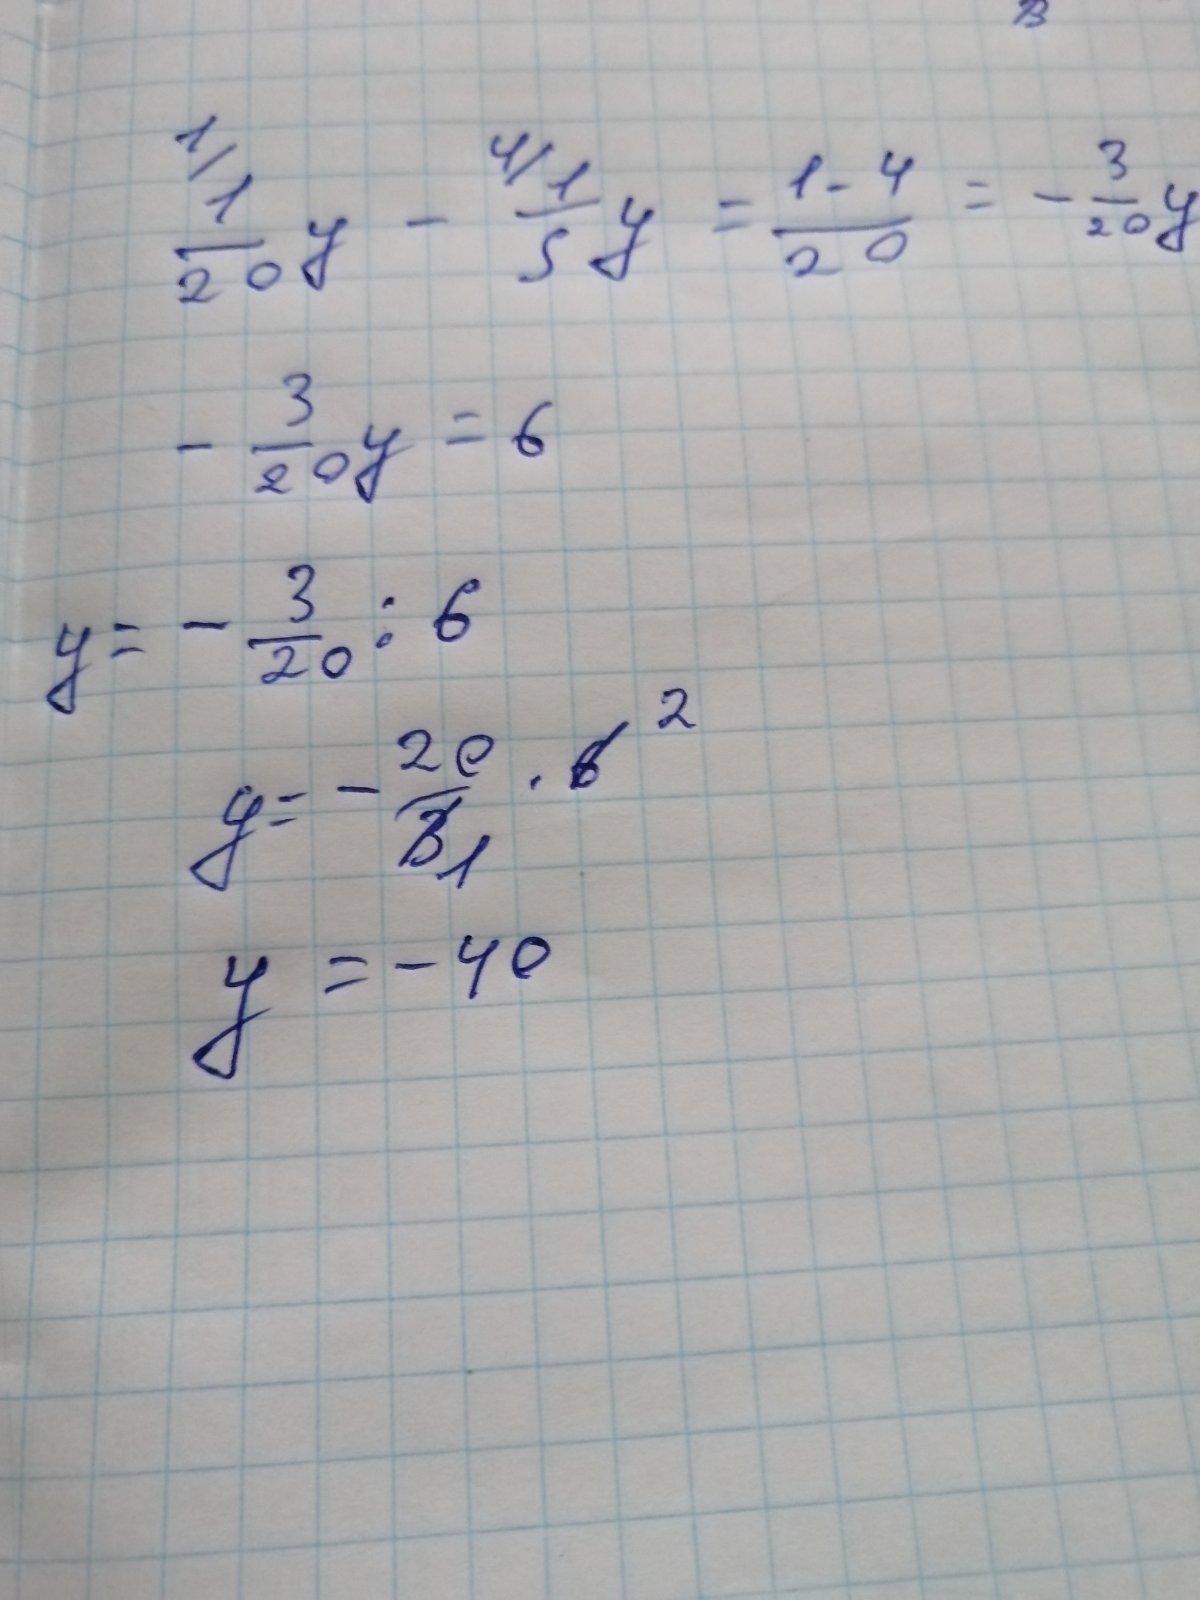 в
1/ 1/20 y - 4/ 1/5 y = 1-4/20 = - 3/20 y
- 3/20 y = 6
y = - 3/20 : 6
y = - 20/3 1 · 6 2
y = - 40